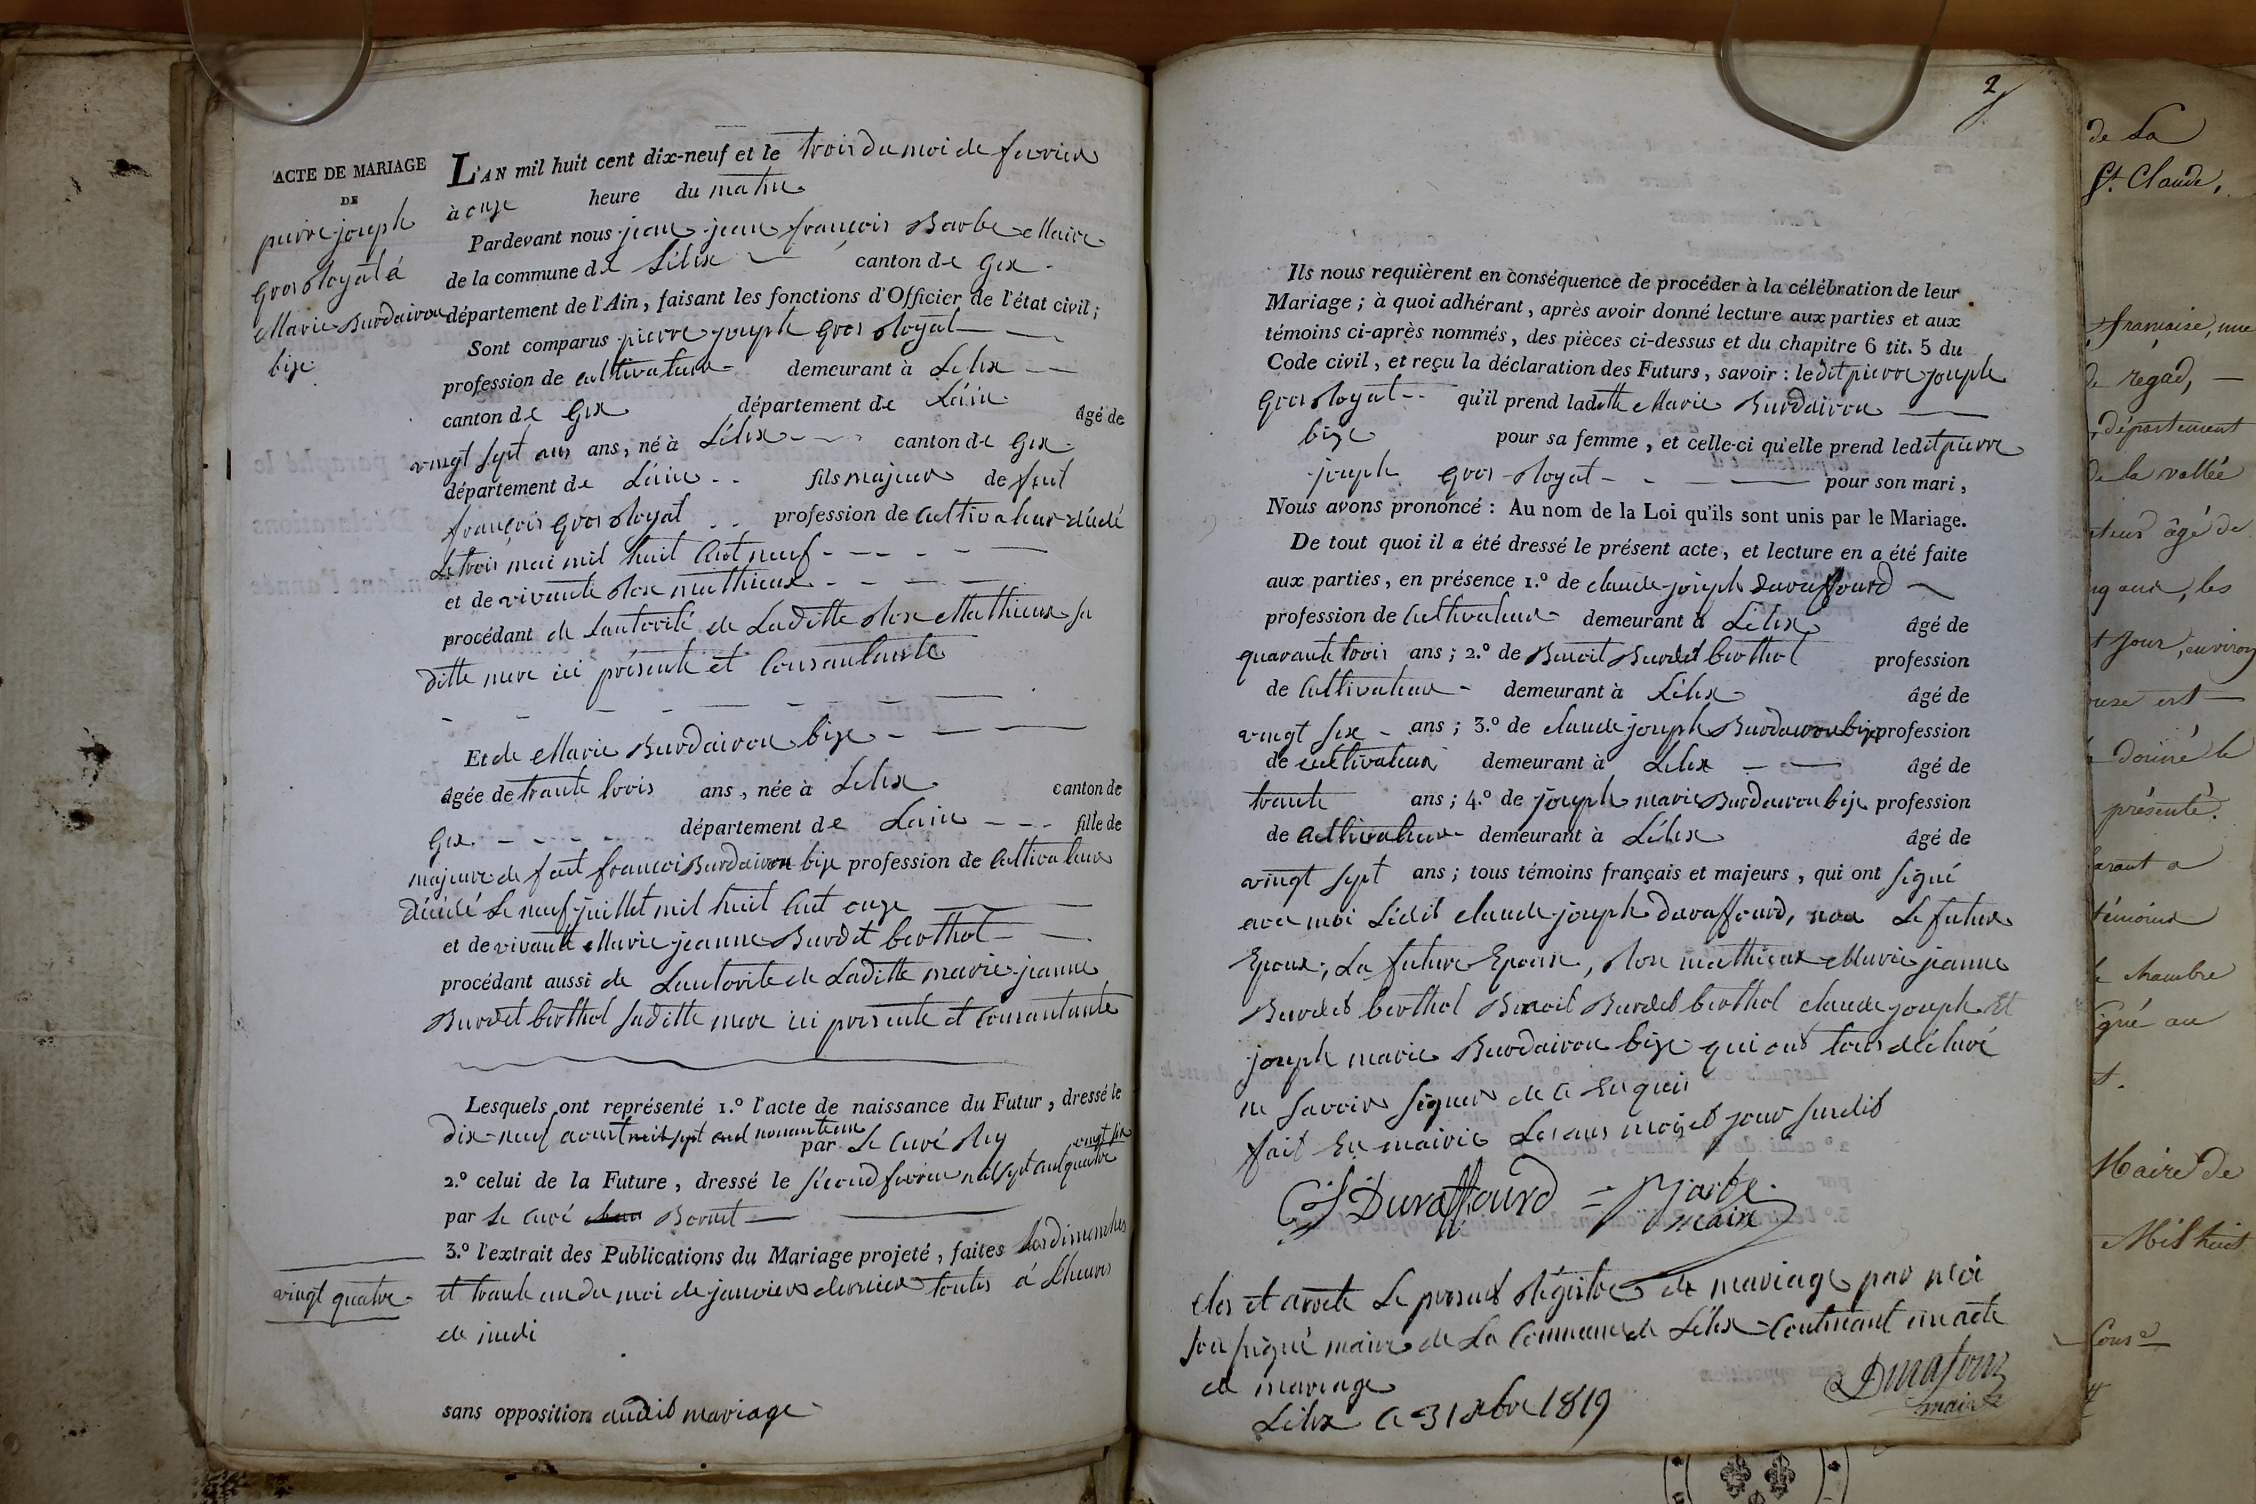 ACTE DE MARIAGE
DE
pierre joseph
Gros Royat á
Marie Burdairon
bize
L'AN mil huit cent dix-neuf et le trois du moi de fevrier
à onze heure du matin
Pardevant nous jean jean françois Barbe Maire
de la commune de Lélex canton de Gex
département de l'Ain, faisant les fonctions d'Officier de l'état civil;
Sont comparus pierre joseph Gros Royat
profession de cultivateur demeurant à Lelex
canton de Gex département de Láin âgé de
vingt sept ans ans, né à Lélex canton de Gex
département de Láin fils majeur de feut
françois Gros Royat profession de Cultivateur décidé
Le trois mai mil huit Cent neuf
et de vivante Rose mathieux
procédant de Lautorité de Laditte Rose Mathieux sa
ditte mere ici présente et Consantante
Et de Marie Burdairon bize
âgée de trante trois ans, née à Lelex canton de
Gex département de Lain fille de
majeure de feut françoi Burdairon bize profession de Cultivateur
décidé Le neuf juillet mil huit Cent onze
et de vivante Marie jeanne Burdet berthot
procédant aussi de Lautorite de Laditte marie jeanne
Burdet berthot saditte mere ici présente et Consantante
Lesquels ont représenté 1.º l'acte de naissance du Futur, dressé le
dix-neuf aoust mil sept cent nonante un par Le Curé Rey
vingt six
2.º celui de la Future, dressé le sécond fevrier mil sept cent quatre
par Le Curé Bornet
3.º l'extrait des Publications du Mariage projeté, faites Les dimenches
vingt quatre
et trante un du moi de janvier dernier toutes á Lheures
de midi
sans opposition audit mariage
2
Ils nous requièrent en conséquence de procéder à la célébration de leur
Mariage; à quoi adhérant, après avoir donné lecture aux parties et aux
témoins ci-après nommés, des pièces ci-dessus et du chapitre 6 tit. 5 du
Code civil, et reçu la déclaration des Futurs, savoir: ledit pierre joseph
Gros Royat qu'il prend laditte Marie Burdairon
bize pour sa femme, et celle-ci qu'elle prend ledit pierre
joseph Gros Royat pour son mari,
Nous avons prononcé: Au nom de la Loi qu'ils sont unis par le Mariage.
De tout quoi il a été dressé le présent acte, et lecture en a été faite
aux parties, en présence 1.º de claude joseph Duraffourd
profession de Cultivateur demeurant à Lélex âgé de
quarante trois ans; 2.º de Benoit Burdet berthot profession
de Cultivateur demeurant à Lélex âgé de
vingt six ans; 3.º de claude joseph Burdairon bize profession
de cultivateur demeurant à Lelex âgé de
trante ans; 4.º de joseph marie Burdairon bize profession
de Cultivateur demeurant à Lélex âgé de
vingt sept ans; tous témoins français et majeurs, qui ont signé
avec moi Lédit claude joseph Duraffourd, non Le future
Epoux, La future Epouse, Rose mathieux Marie jeanne
Burdet berthot Benoit Burdet berthot claude joseph Et
joseph marie Burdairon bize qui ont tous déclaré
ne savoir signer de Ce Enquis
fait En mairie Les ans mois et jour susdit
CJ Duraffourd Barbe
maire
Clos et arrete Le present Régistre de mariage par moi
sousigné maire de La Commune de Lélex Contenant un acte
de mariage
Lélex Ce 31 xbre 1819
maire
de La
St. Claude,
française, une
de regad,
département
de la vallée
âgé de
les
jour, environ
est
donné le
présenté.
a
témoins
chambre
signé au
Maire de
Mil huit